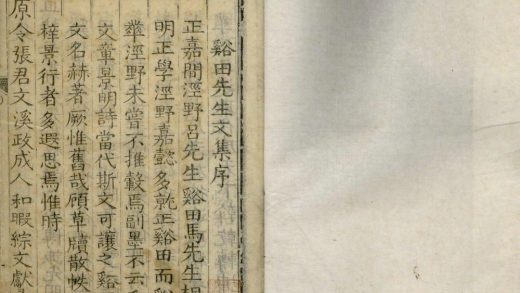 谿田先生文集序
正嘉間涇野呂先生谿田馬先生相
明正學涇野嘉懿多就正谿田而谿
舉涇野未嘗不推轂焉副墨不云乎
文章景明詩當代斯文可讓之谿
文名赫著厥惟舊哉頋草牘散帙
梓景行者多遐思焉惟時
原令張君文溪政成人和暇綜文獻